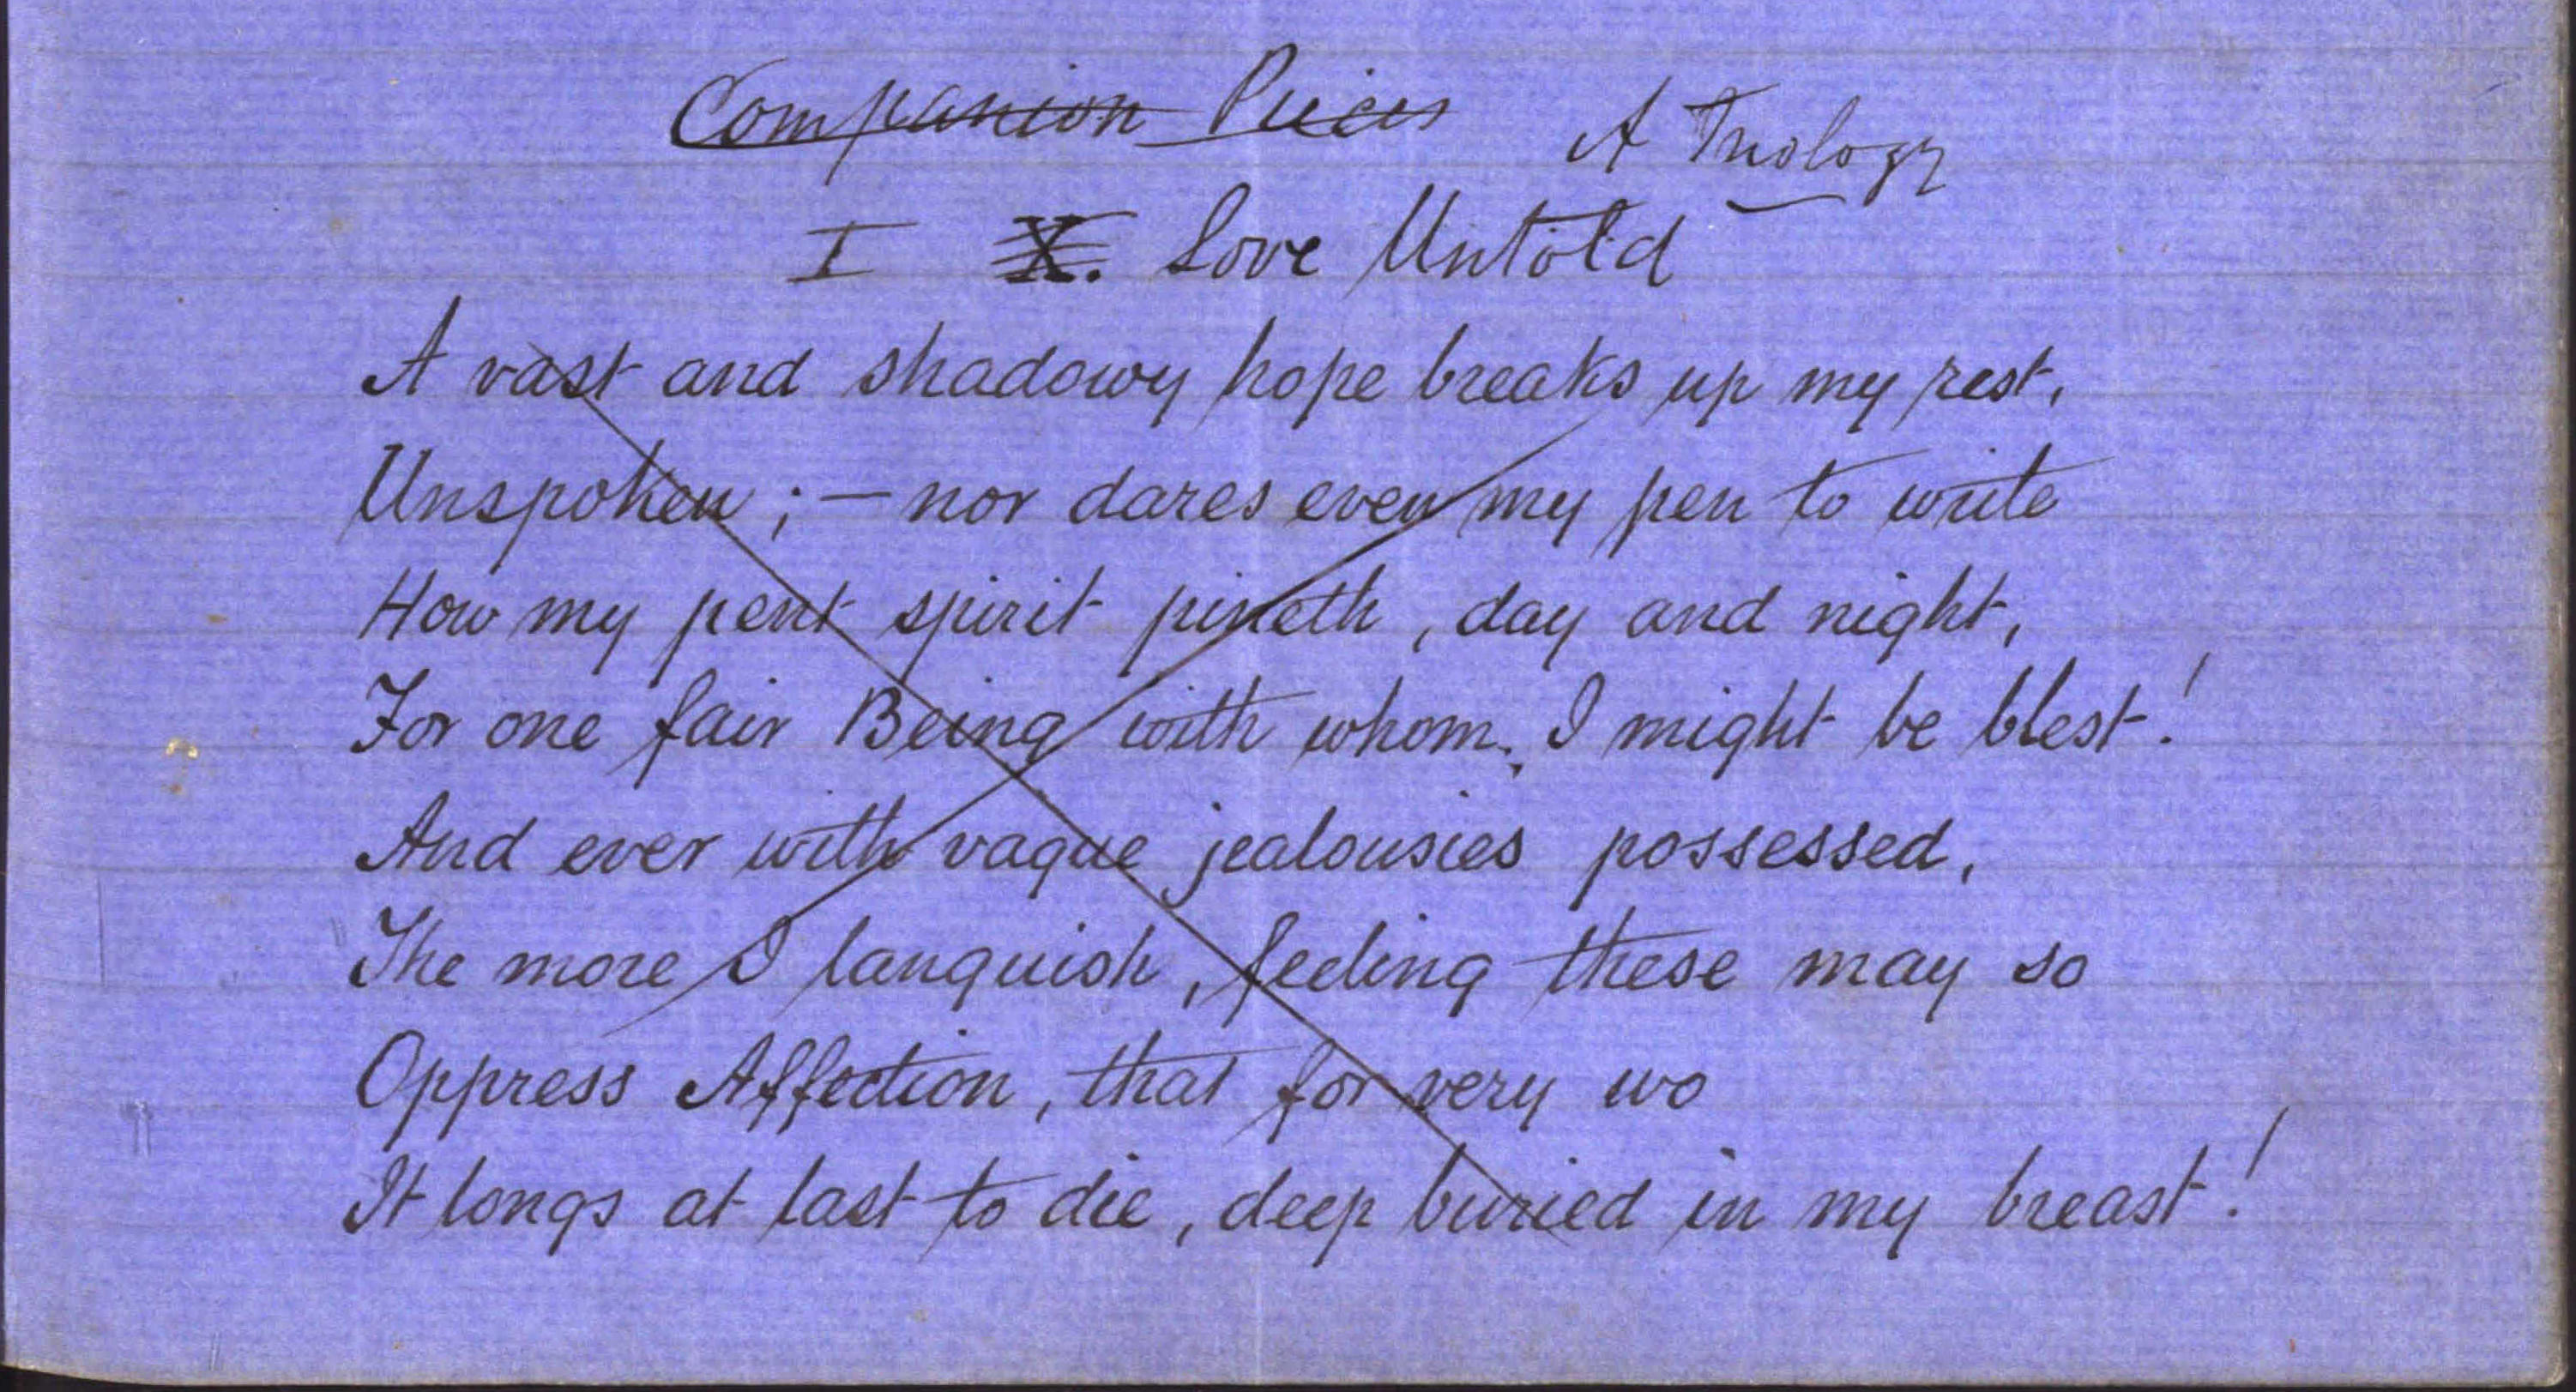 Companion Pieces A Trilogy
I X. Love Untold
A vast and shadowy hope breaks up my rest,
Unspoken; — nor dares even my pen to write
How my pent spirit pineth, day and night,
For one fair Being with whom, I might be blest!
And ever with vague jealousies possessed,
The more I languish, feeling these may so
Oppress Affection, that for very wo
It longs at last to die, deep buried in my breast!